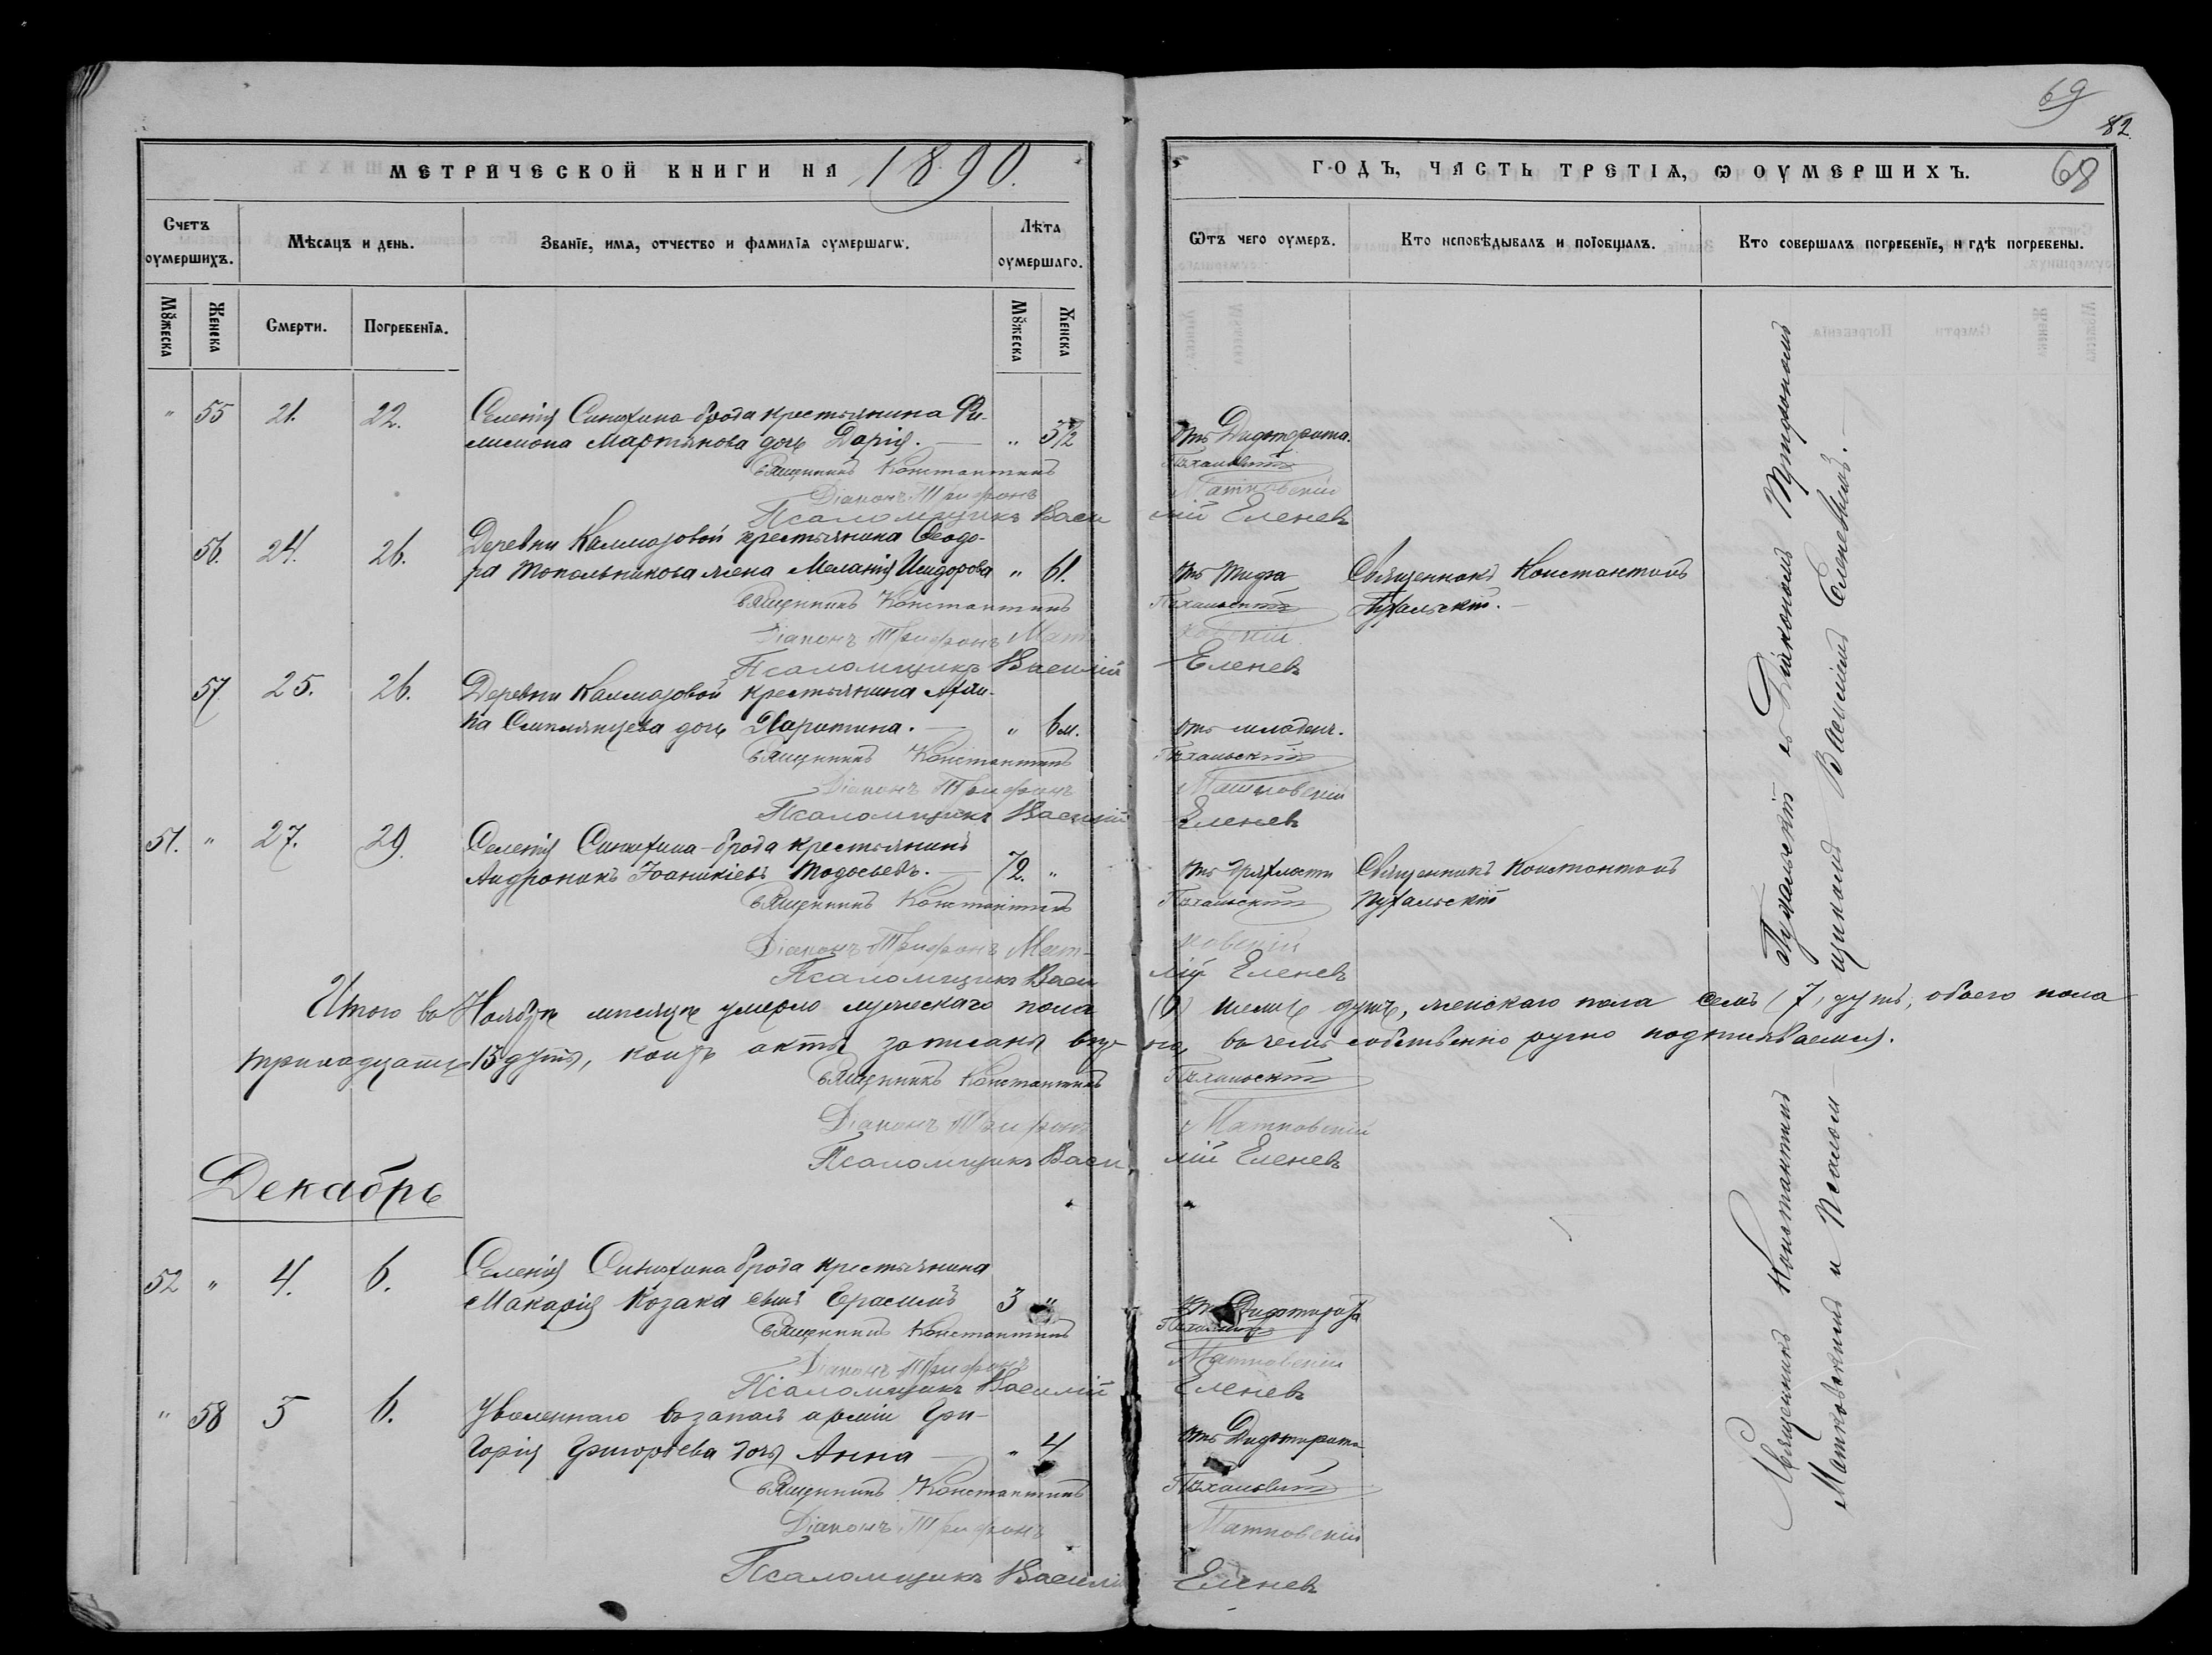 69
82
68
МЕТРИЧЕСКОЙ КНИГИ НА 1890.
ГОДЪ, ЧАСТЬ ТРЕТІѦ, Ѡ ОУМЕРШИХЪ.
Счетъ оумершихъ.
Мѣсѧцъ и день.
Званїе, имѧ, отчество и фамилїѧ оумершагѡ.
Лѣта оумершаго.
Ѿтъ чего оумеръ.
Кто исповѣдывалъ и поїобщалъ.
Кто совершалъ погребенїе, и гдѣ погребены.
Мꙋжеска
Женска
Смерти.
Погребенїѧ.
Мꙋжеска
Женска
" 55 21. 22. Селенія Синюхина-брода крестьянина Фи-
лимона Мартынова дочь Дарія. — " 3 1/2 отъ Дифтерита.
Священникъ Константинъ Пухальскій
Діаконъ Трифонъ Матковскій
Псаломщикъ Василій Еленевъ
56. 24. 26. Деревни Калмазовой крестьянина Ѳеодо-
ра Топольникова жена Меланія Исидорова " 61. отъ тифа Священникъ Константинъ
Священникъ Константинъ Пухальскій Пухальскій. —
Діаконъ Трифонъ Матковскій
Псаломщикъ Василій Еленевъ
57. 25. 26. Деревни Калмазовой крестьянина
дочь Харитина. — " 6 м. отъ младенч.
Священникъ Константинъ Пухальскій
Діаконъ Трифонъ Матковскій
Псаломщикъ Василій Еленевъ
51. " 27. 29. Селенія Синюхина-брода крестьянинъ
Андроникъ Іоаникіевъ Тодосьевъ. — 72. " отъ дряхлости Священникъ Константинъ
Священникъ Константинъ Пухальскій Пухальскій
Діаконъ Трифонъ Матковскій
Псаломщикъ Василій Еленевъ
Итого въ Ноябрѣ мѣсяцѣ умерло мужескаго пола (6) шесть душъ, женскаго пола семь (7) душъ, обоего пола
тринадцать 13 душъ, коихъ акты записаны въ чемъ собственно ручно подписываемся.
Священникъ Константинъ Пухальскій
Діаконъ Трифонъ Матковскій
Псаломщикъ Василій Еленевъ
Декабрь
52 " 4. 6. Селенія Синюхина брода крестьянина
Макарія Козака сынъ Ерасмъ 3 " отъ Дифтерита
Священникъ Константинъ Пухальскій
Діаконъ Трифонъ Матковскій
Псаломщикъ Василій Еленевъ
" 58 5 6. Уволеннаго въ запасъ арміи Гри-
горія Григорьева дочь Анна — " 4 отъ Дифтерита
Священникъ Константинъ Пухальскій
Діаконъ Трифонъ Матковскій
Псаломщикъ Василій Еленевъ
Священникъ Константинъ Пухальскій съ Діакономъ Трифономъ
Матковскимъ и Псалом-щикомъ Василіемъ Еленевымъ. —